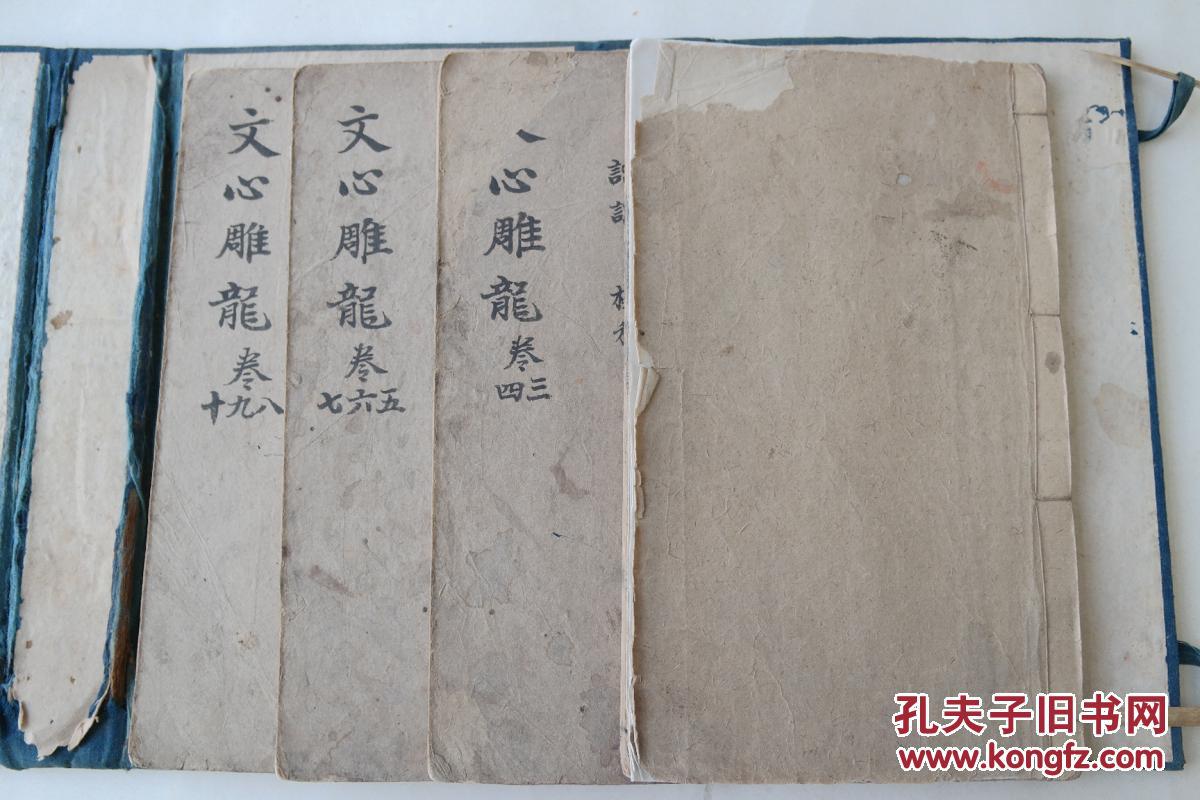 文心雕龍卷
八九十
文心雕龍卷
五六七
心雕龍卷
三四
孔夫子旧书网
www.kongfz.com